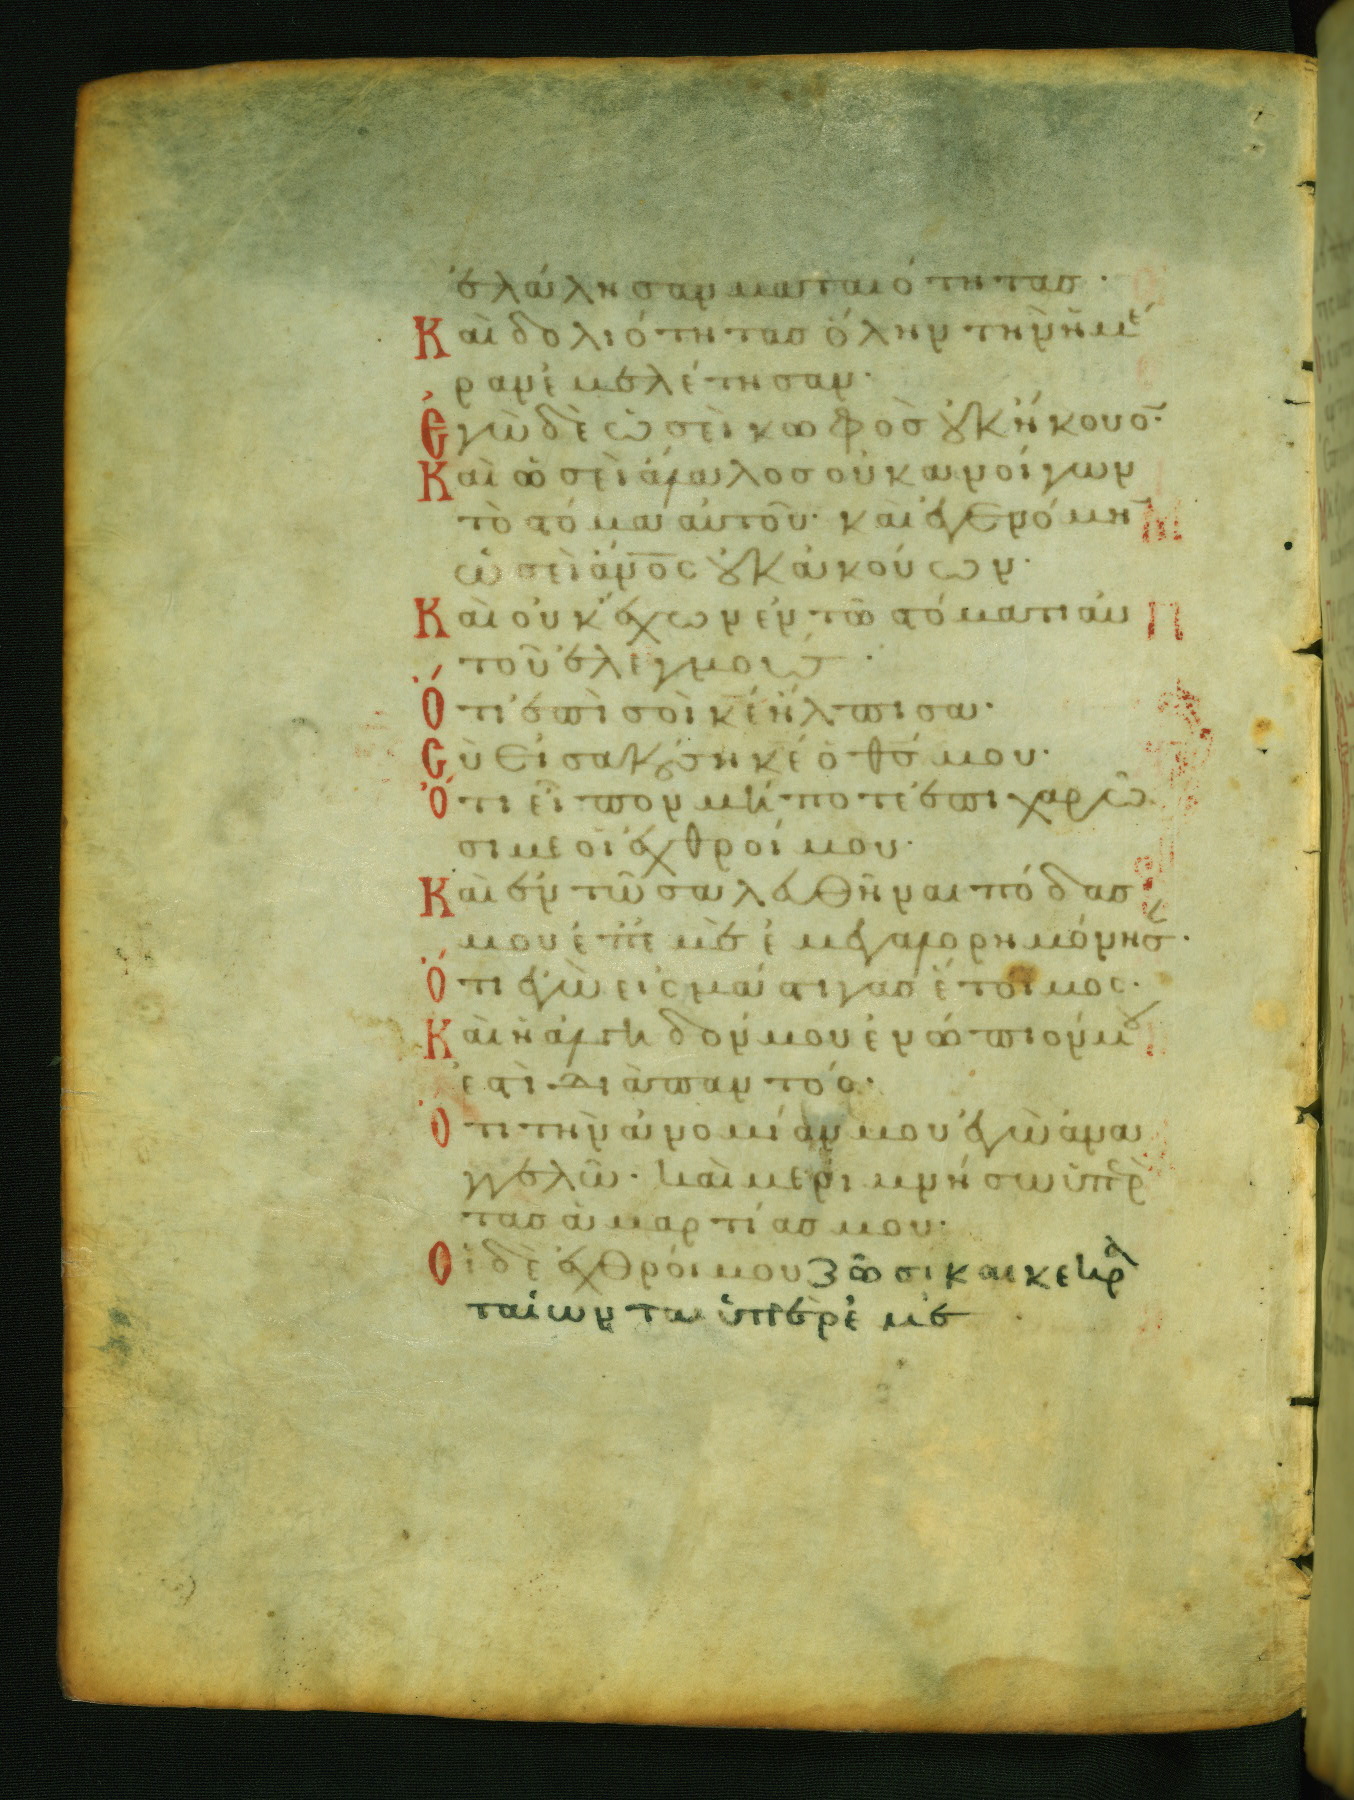 ἐλάλησαν ματαιότητασ·
Καὶ δολιότητασ ὅλην τὴν ἡμέ
ραν ἐμελέτησαν·
Ἐγὼ δὲ ὡσεὶ κωφὸσ οὐκ ἤκουο̅·
Καὶ ὡσεὶ ἄλαλοσ οὐκ ἀνοίγων
τὸ στόμα αὐτοῦ· καὶ ἐγενόμη̅
ὡσεὶ ἄνο̅ς οὐκ ἀκούων·
Καὶ οὐκ ἔχων ἐν τῶ στόματι αὐ
τοῦ ἐλεγμούσ·
Ὅτι ἐπὶ σοὶ κ̅ε̅ ἤλπισα·
Σὺ εἰσακούση κ̅ε̅ ὁ θ̅σ̅ μου·
Ὅτι εἶπον μήποτε ἐπιχαρῶ
σι με οἱ ἐχθροί μου·
Καὶ ἐν τῶ σαλευθῆναι πόδασ
μου ἐπ ἐμὲ ἐμεγαλορημόνησ̅·
Ὅτι ἐγὼ εἰς μάστιγασ ἕτοιμος·
Καὶ ἡ ἀλγηδών μου ἐνώπιόν μου
ἐστὶ διαπαντόσ·
Ὅτι τὴν ἀνομίαν μου ἐγὼ ἀνα
γγελῶ· καὶ μεριμνήσω ὑπὲρ
τασ ἁμαρτίασ μου·
Οἱ δὲ ἐχθροί μου ζῶσι και κεκρα
ταίωνται ὑπὲρ ἐμέ